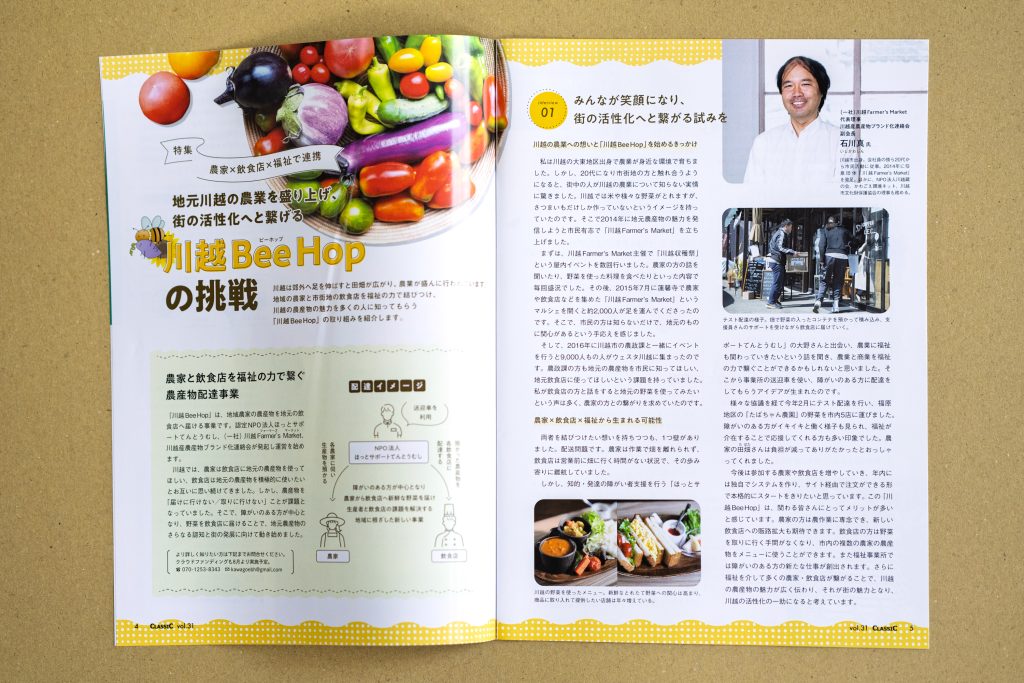 特集
農家×飲食店×福祉で連携
地元川越の農業を盛り上げ、
街の活性化へと繋げる
ビーホップ
川越Bee Hop
の挑戦
川越は郊外へ足を伸ばすと田畑が広がり、農業が盛んに行われています。
地域の農家と市街地の飲食店を福祉の力で結びつけ、
川越の農産物の魅力を多くの人に知ってもらう
「川越Bee Hop」の取り組みを紹介します。
農家と飲食店を福祉の力で繋ぐ
農産物配達事業
「川越Bee Hop」は、地域農家の農産物を地元の飲
食店へ届ける事業です。認定NPO法人ほっとサポ
ートてんとうむし、(一社)川越Farmer's Market、
川越産農産物ブランド化連絡会が発起し運営を始
めます。
川越では、農家は飲食店に地元の農産物を使って
ほしい、飲食店は地元の農産物を積極的に使いたい
とお互いに思い続けてきました。しかし、農産物を
「届けに行けない／取りに行けない」ことが課題と
なっていました。そこで、障がいのある方が中心とな
り、野菜を飲食店に届けることで、地元農産物の
さらなる認知と街の発展に向けて動き始めました。
より詳しく知りたい方は下記までお問合せください。
クラウドファンディングも8月より実施予定。
☎ 070-1253-8343 ✉kawagoebh@gmail.com
配達イメージ
送迎車を
利用
NPO法人
ほっとサポートてんとうむし
各農家に伺い
生産物を預かる
預かった農産物を
各飲食店に
配達する
障がいのある方が中心となり
農家から飲食店へ新鮮な野菜を届け
生産者と飲食店の課題を解決する
地域に根ざした新しい事業
農家
飲食店
4 CLASSIC vol.31
interview
01
みんなが笑顔になり、
街の活性化へと繋がる試みを
川越の農業への想いと「川越Bee Hop」を始めるきっかけ
私は川越の大東地区出身で農業が身近な環境で育ちま
した。しかし、20代になり市街地の方と触れ合うよう
になると、街中の人が川越の農業について知らない実情
に驚きました。川越では米や様々な野菜がとれますが、
さつまいもだけしか作っていないというイメージを持っ
ていたのです。そこで2014年に地元農産物の魅力を発
信しようと市民有志で「川越Farmer's Market」を立ち
上げました。
まずは、川越Farmer's Market主催で「川越収穫祭」
という屋内イベントを数回行いました。農家の方の話を
聞いたり、野菜を使った料理を食べたりといった内容で
毎回盛況でした。その後、2015年7月に蓮馨寺で農家
や飲食店などを集めた「川越Farmer's Market」という
マルシェを開くと約2,000人が足を運んでくださったの
です。そこで、市民の方は知らないだけで、地元のもの
に関心があるという手応えを感じました。
そして、2016年に川越市の農政課と一緒にイベント
を行うと9,000人もの人がウェスタ川越に集まったので
す。農政課の方も地元の農産物を市民に知ってほしい、
地元飲食店に使ってほしいという課題を持っていました。
私が飲食店の方と話をすると地元の野菜を使ってみたい
という声も多く、農家の方との繋がりを求めていたのです。
農家×飲食店×福祉から生まれる可能性
両者を結びつけたい想いを持ちつつも、1つ壁があり
ました。配送問題です。農家は作業で畑を離れられず、
飲食店は営業前に畑に行く時間がない状況で、その歩み
寄りに苦戦していました。
しかし、知的・発達の障がい者支援を行う「ほっとサ
川越の野菜を使ったメニュー。新鮮なとれたて野菜への関心は高まり、
商品に取り入れて提供したい店舗は年々増えている。
(一社)川越Farmer's Market
代表理事
川越産農産物ブランド化連絡会
副会長
石川真 氏
いしかわしん
テスト配達の様子。畑で野菜の入ったコンテナを預かって積み込み、支
援員さんのサポートを受けながら飲食店に届けていく。
ポートてんとうむし」の大野さんと出会い、農業に福祉
も関わっていきたいという話を聞き、農業と商業を福祉
の力で繋ぐことができるかもしれないと思いました。そ
こから事業所の送迎車を使い、障がいのある方に配達を
してもらうアイデアが生まれたのです。
様々な協議を経て今年2月にテスト配達を行い、福原
地区の「たばちゃん農園」の野菜を市内5店に運びました。
障がいのある方がイキイキと働く様子も見られ、福祉が
介在することで応援してくれる方も多い印象でした。農
家の田畑さんは負担が減ってありがたかったとおっしゃ
ってくれました。
今後は参加する農家や飲食店を増やしていき、年内に
は独自でシステムを作り、サイト経由で注文ができる形
で本格的にスタートをきりたいと思っています。この「川
越Bee Hop」は、関わる皆さんにとってメリットが多い
と感じています。農家の方は農作業に専念でき、新しい
飲食店への販路拡大も期待できます。飲食店の方は野菜
を取りに行く手間がなくなり、市内の複数の農家の農産
物をメニューに使うことができます。また福祉事業所で
は障がいのある方の新たな仕事が創出されます。さらに
福祉を介して多くの農家・飲食店が繋がることで、川越
の農産物の魅力が広く伝わり、それが街の魅力となり、
川越の活性化の一助になると考えています。
vol.31 CLASSIC 5